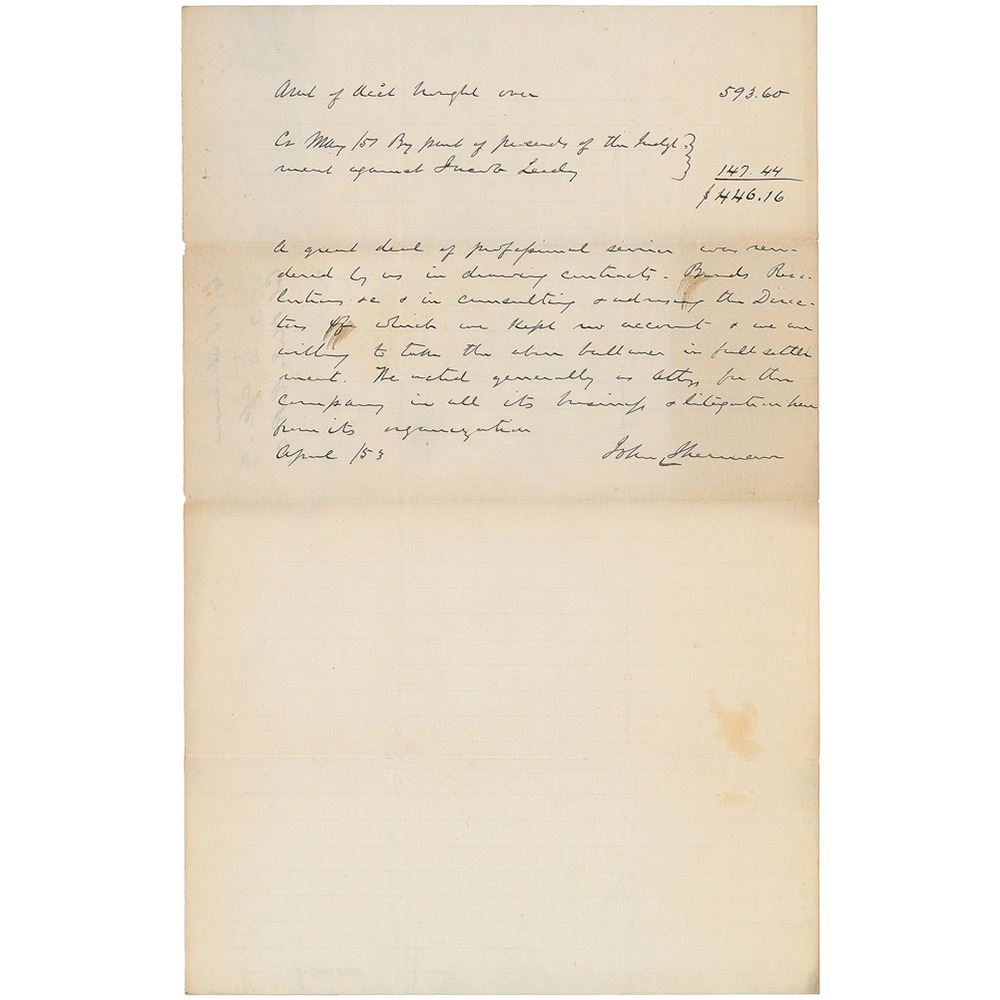 Amt of Acct brought over 593.60
Cr May /51 By part of proceeds of the Judg-
ment against Jacob Leedy 147.44
$446.16
A great deal of professional service was ren-
dered by us in drawing contracts - Bonds Res-
olutions &c & in consulting & advising the Direc-
tors of which we kept no account & we are
willing to take the above ballance in full settle
ment. We acted generally as attys for the
company in all its business & litigation here
from its organization
April /53 John Sherman